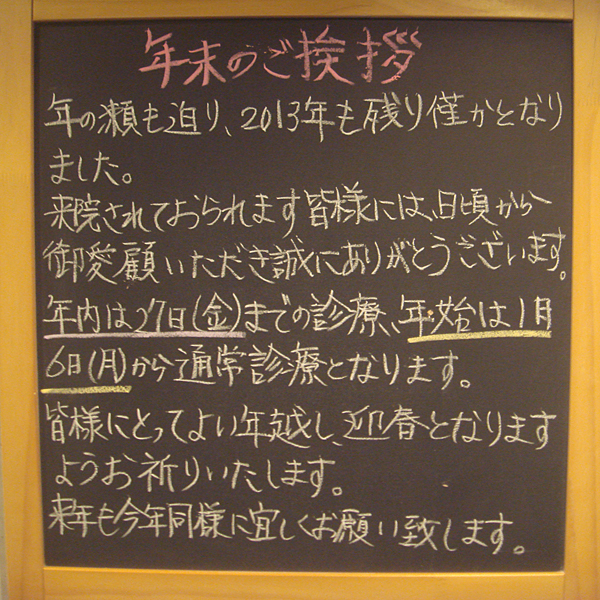 年末のご挨拶
年の瀬も迫り、2013年も残り僅かとなり
ました。
来院されております皆様には、日頃から
御愛顧いただき誠にありがとうございます。
年内は27日(金)までの診療、年始は1月
6日(月)から通常診療となります。
皆様にとってよい年越し、迎春となります
ようお祈りいたします。
来年も今年同様に宜しくお願い致します。